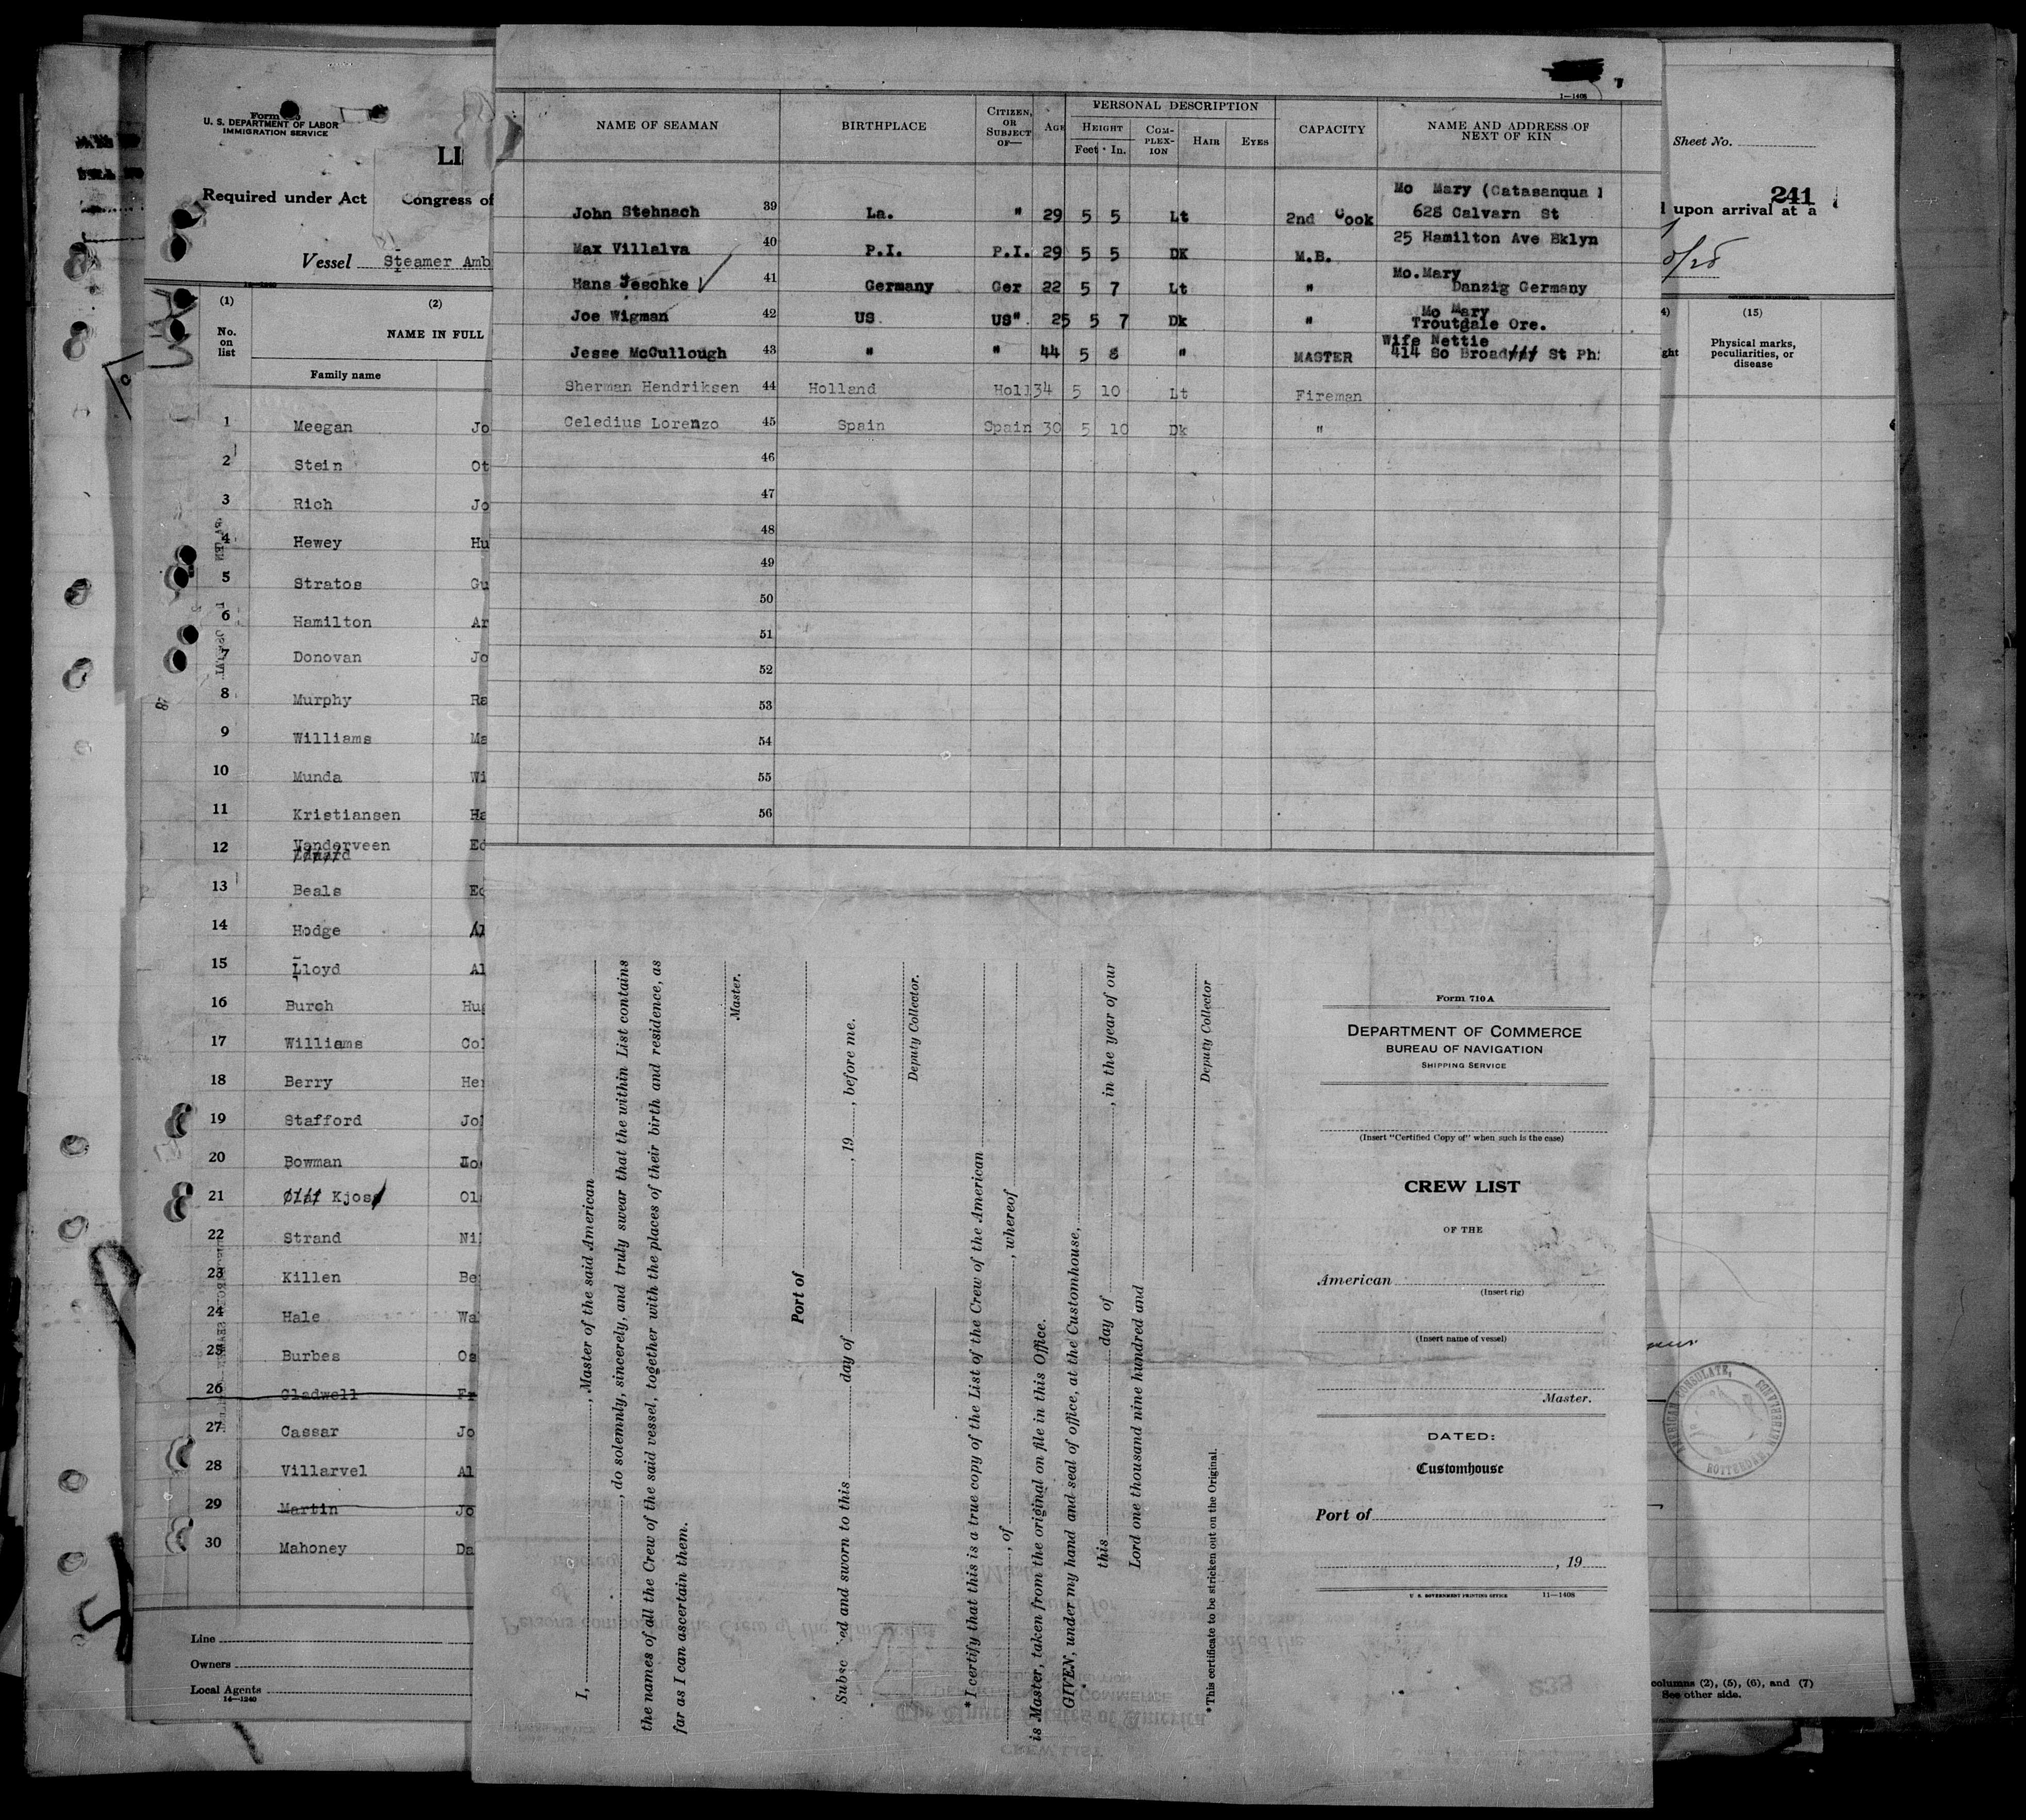 Form
U. S. DEPARTMENT OF LABOR
IMMIGRATION SERVICE
LI
Required under Act Congress of
Vessel Steamer Amb
14-1240
(1) (2)
No. on list NAME IN FULL
Family name
1 Meegan Jo
2 Stein Ot
3 Rich Jo
4 Hewey Hu
5 Stratos Gu
6 Hamilton Ar
7 Donovan Jo
8 Murphy Ra
9 Williams Ma
10 Munda Wi
11 Kristiansen Ha
12 Vanderveen Ed
13 Beals Ed
14 Hodge Al
15 Lloyd Al
16 Burch Hug
17 Williams Col
18 Berry Her
19 Stafford Jo
20 Bowman
21 Olaf Kjoss Ol
22 Strand Ni
23 Killen Be
24 Hale Wa
25 Burbes Os
26 Gladwell Fr
27 Cassar Jo
28 Villarvel Al
29 Martin Jo
30 Mahoney Da
Line
Owners
Local Agents
14-1240
1-1408
NAME OF SEAMAN BIRTHPLACE CITIZEN, OR SUBJECT OF— AGE PERSONAL DESCRIPTION CAPACITY NAME AND ADDRESS OF NEXT OF KIN
HEIGHT COM-PLEX-ION HAIR EYES
Feet In.
Mo Mary (Catasanqua
John Stehnach 39 La. " 29 5 5 Lt 2nd Cook 628 Calvarn St
Max Villalva 40 P.I. P.I. 29 5 5 DK M.B. 25 Hamilton Ave Bklyn
Hans Jeschke 41 Germany Ger 22 5 7 Lt " Mo.Mary
Danzig Germany
Joe Wigman 42 US US" 25 5 7 Dk " Mo Mary
Troutdale Ore.
Jesse McCullough 43 " " 44 5 8 " MASTER Wife Nettie
414 So Broad St Ph
Sherman Hendriksen 44 Holland Holl 34 5 10 Lt Fireman
Celedius Lorenzo 45 Spain Spain 30 5 10 Dk "
46
47
48
49
50
51
52
53
54
55
56
I, , Master of the said American
, do solemnly, sincerely, and truly swear that the within List contains
the names of all the Crew of the said vessel, together with the places of their birth and residence, as
far as I can ascertain them.
Master.
Port of
Subsc ed and sworn to this day of , 19 , before me.
Deputy Collector.
*I certify that this is a true copy of the List of the Crew of the American
, of , whereof
is Master, taken from the original on file in this Office.
GIVEN, under my hand and seal of office, at the Customhouse,
this day of , in the year of our
Lord one thousand nine hundred and
Deputy Collector
*This certificate to be stricken out on the Original.
Form 710A
DEPARTMENT OF COMMERCE
BUREAU OF NAVIGATION
SHIPPING SERVICE
(Insert "Certified Copy of" when such is the case)
CREW LIST
OF THE
American
(Insert rig)
(Insert name of vessel)
Master.
DATED:
Customhouse
Port of
, 19
U. S. GOVERNMENT PRINTING OFFICE 11-1408
Sheet No.
241
upon arrival at a
(15)
Physical marks, peculiarities, or disease
AMERICAN CONSULATE,
ROTTERDAM NETHERLANDS
columns (2), (5), (6), and (7)
See other side.